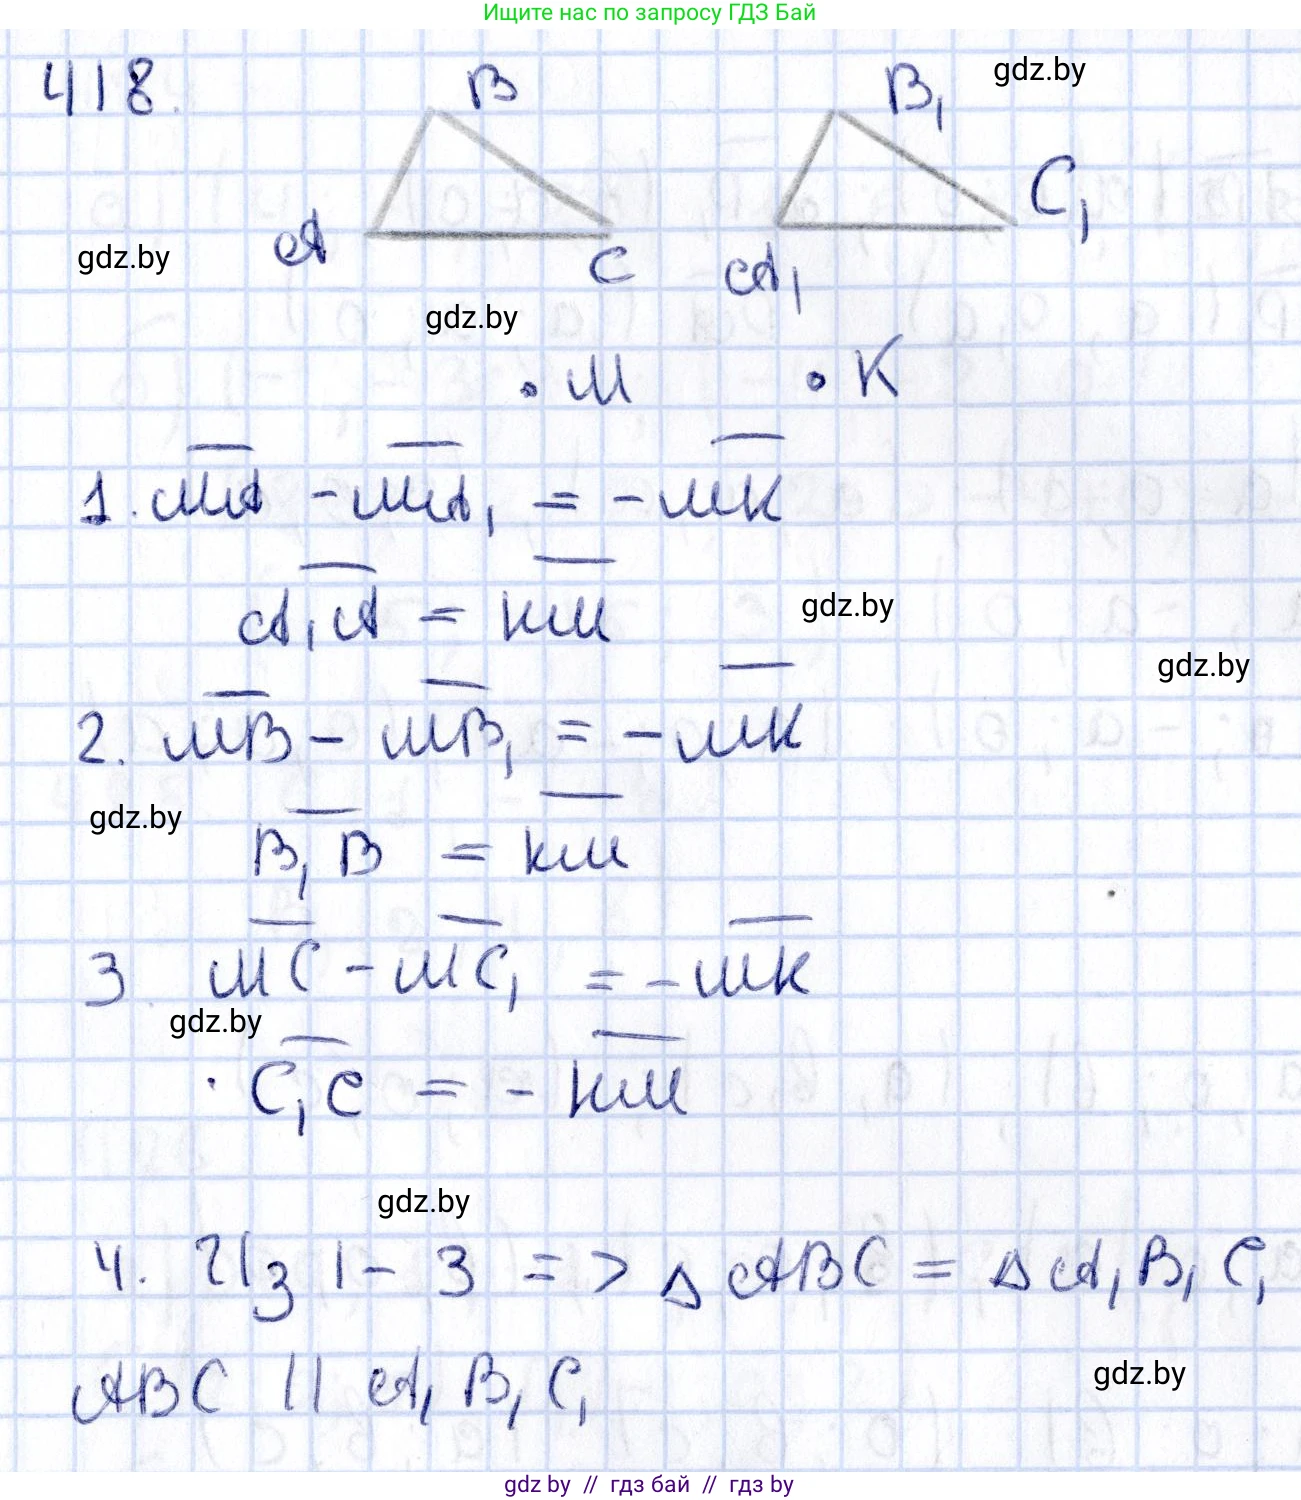 Ищите нас по запросу ГДЗ Бай
418.
B
B₁
gdz.by
C₁
A
gdz.by
C
A₁
gdz.by
. M
. K
1. MA - MA₁ = - MK
A₁A = KM
gdz.by
gdz.by
2. MB - MB₁ = - MK
gdz.by
B₁B = KM
3. MC - MC₁ = - MK
gdz.by
C₁C = - KM
gdz.by
4. Из 1 - 3 => Δ ABC = Δ A₁B₁C₁
ABC || A₁B₁C₁
gdz.by
gdz.by // гдз бай // гдз by